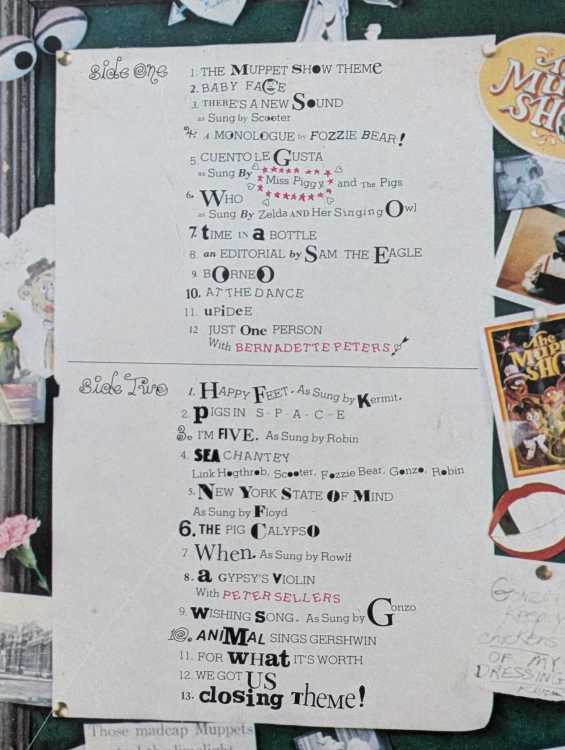 Side One
1. THE MUPPET SHOW THEME
2. BABY FACE
3. THERE'S A NEW SOUND
as Sung by Scooter
4. A MONOLOGUE by FOZZIE BEAR!
5. CUENTO LE GUSTA
as Sung By Miss Piggy and The Pigs
6. WHO
as Sung By Zelda AND Her Singing Owl
7. tIME IN a BOTTLE
8. an EDITORIAL by SAM THE EAGLE
9. BORNEO
10. AT THE DANCE
11. uPiDeE
12 JUST One PERSON
With BERNADETTE PETERS
Side Two
1. HAPPY FEET. As Sung by Kermit.
2. PIGS IN S-P-A-C-E
3. I'M FIVE. As Sung by Robin
4. SEA CHANTEY
Link Hogthrob, Scooter, Fozzie Bear, Gonzo, Robin
5. NEW YORK STATE OF MIND
As Sung by Floyd
6. THE PIG CALYPSO
7. When. As Sung by Rowlf
8. a GYPSY'S VIOLIN
With PETER SELLERS
9. WISHING SONG. As Sung by Gonzo
10. ANIMAL SINGS GERSHWIN
11. FOR WHat IT'S WORTH
12. WE GOT US
13. closing THeME!
The
MU
SH
The
Mupp
SHO
chickens
OF MY
DRESSING
Those madcap Muppets